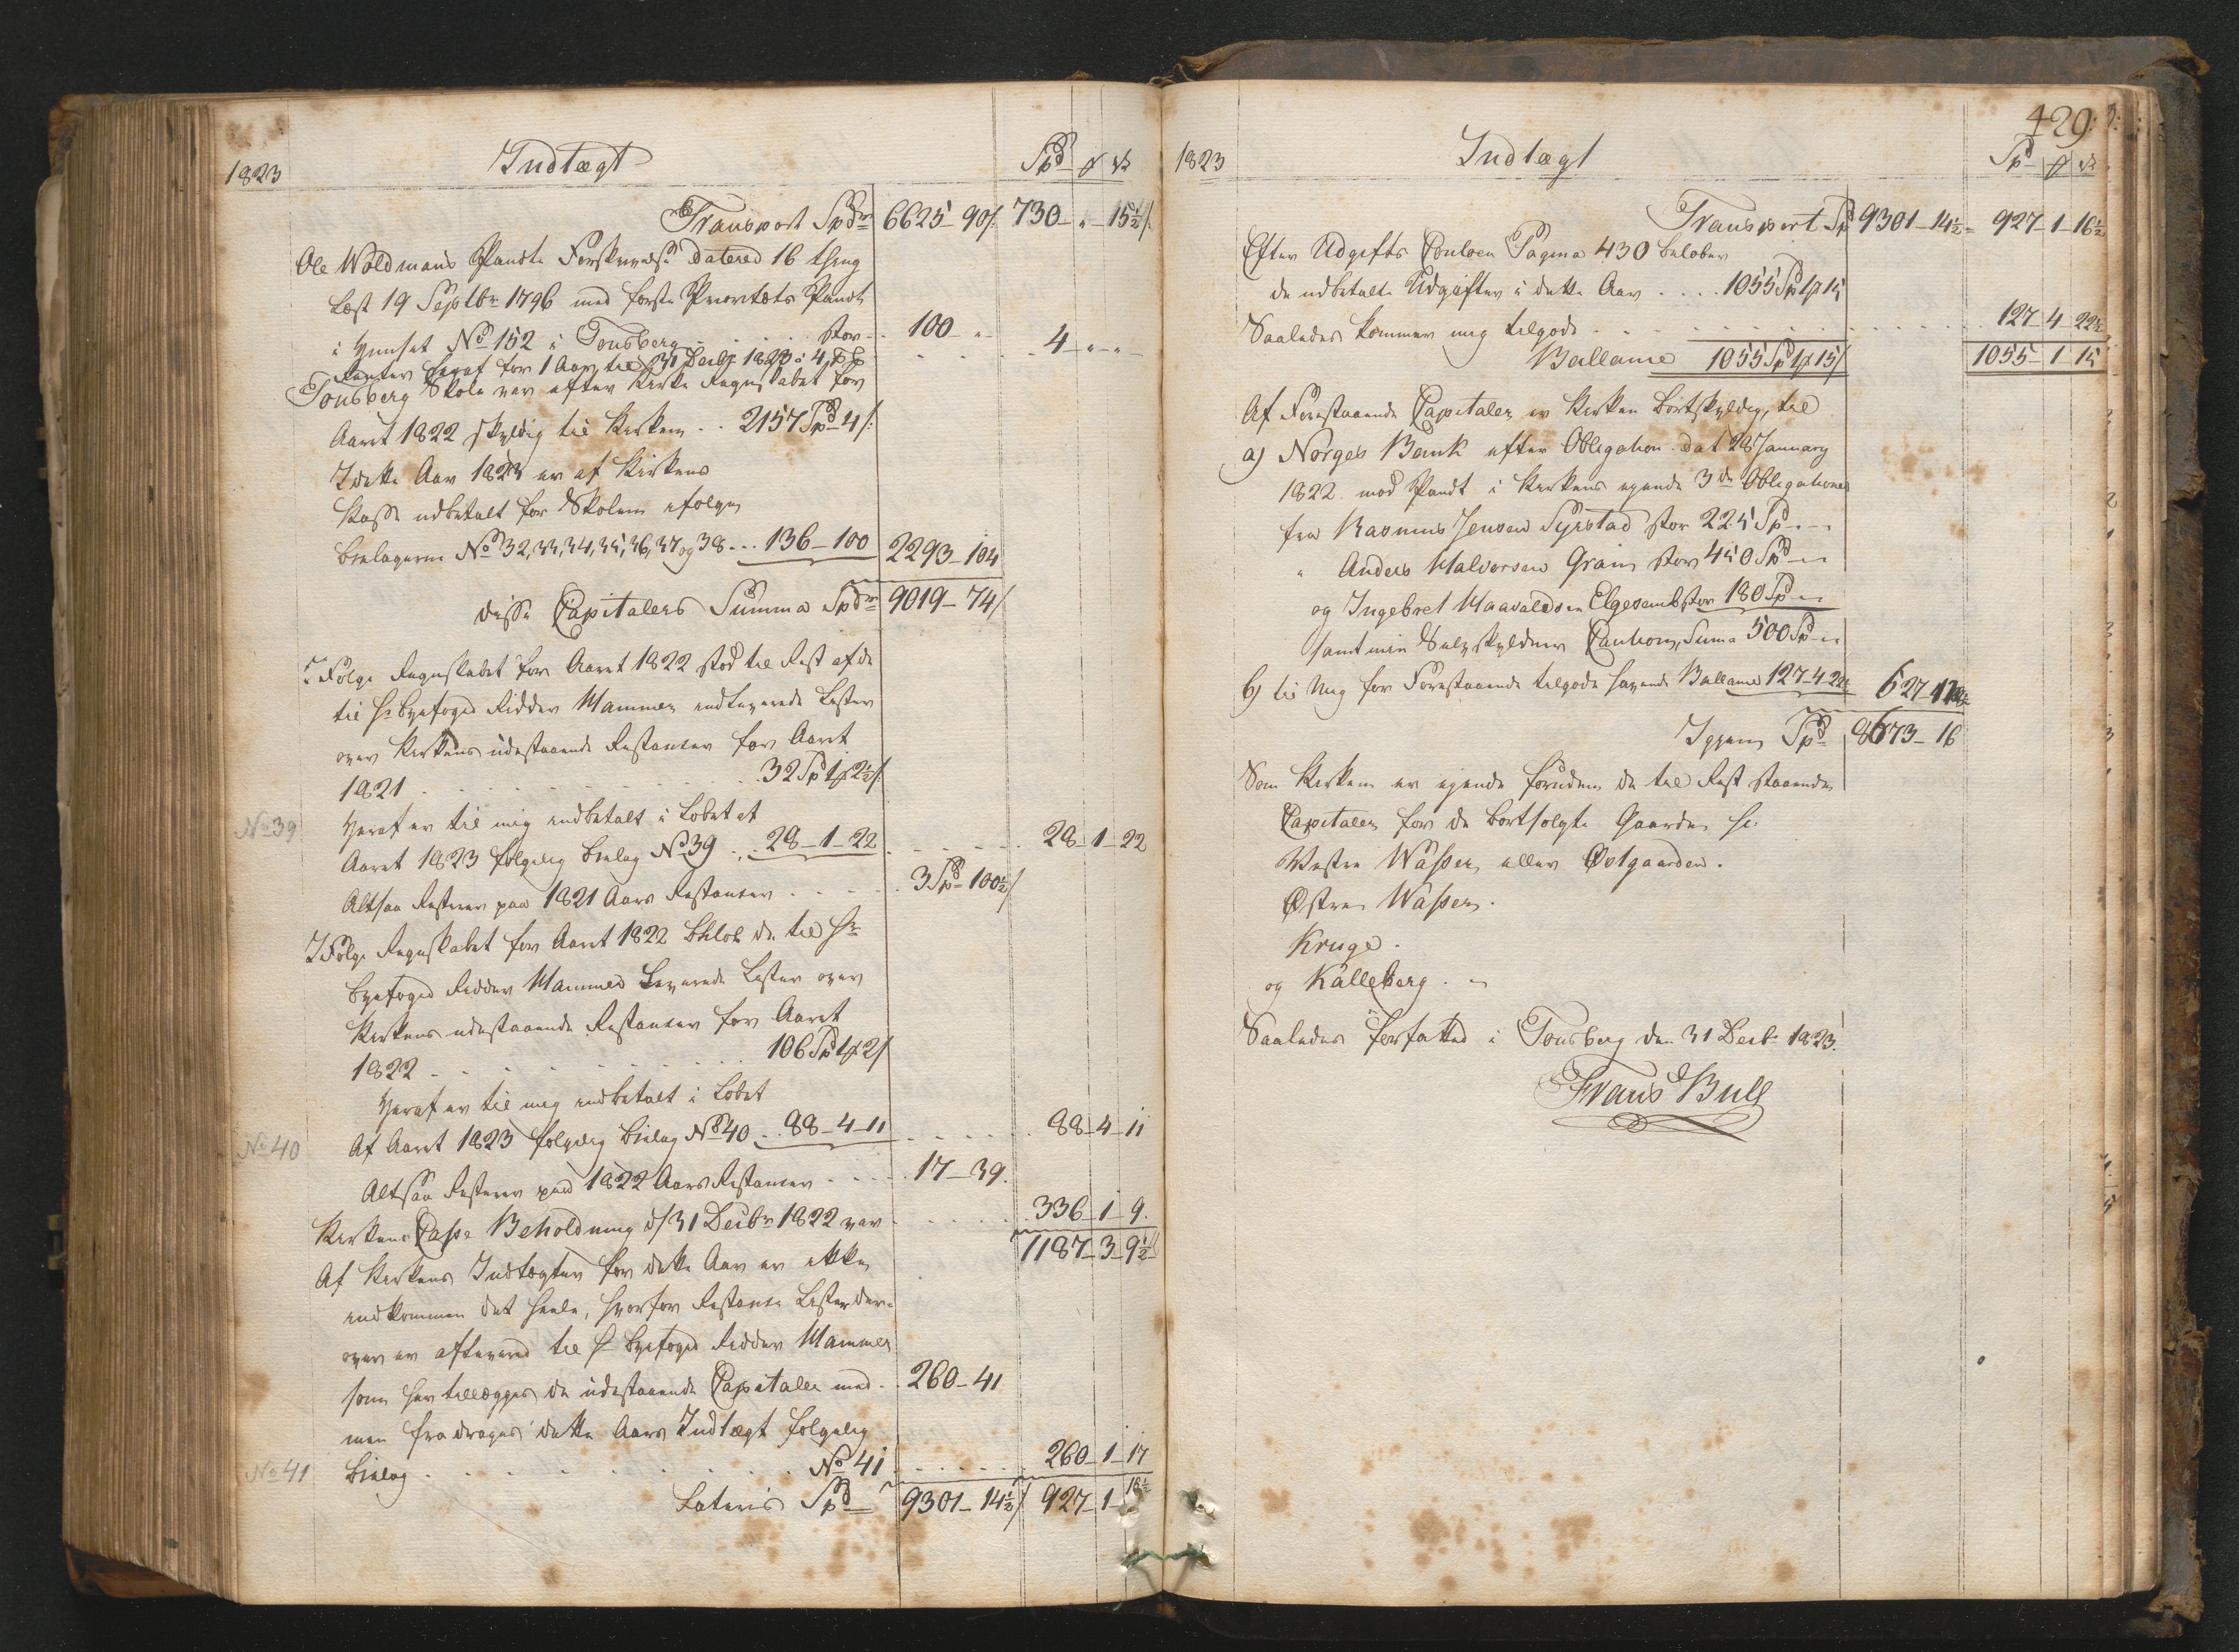 1823 Indtægt Spd ß
Transport Spdr 6625-90/. 730-"-15½/.
Ole Woldmans Pandte Forskrivels datered 16 thing
læst 19 Septbr 1796 med første Prioritets Pandt
i Huuset No 152 i Tonsberg . . . stor - 100-"-
Renter heraf for 1 Aar til 31 Decbr 1823 a 4 pC 4-"-"-
Tonsberg Skole var efter Kirke Regnskabet for
Aaret 1822 skyldig til Kirken . . 2157 Spd 4/:
I dette Aar 1823 er af Kirkens
Kasse udbetalt for Skolen efølge
Bielagerne No 32, 33, 34, 35, 36, 37 og 38 . . . 136-100 2293-104
disse Capitalers Summa Spdr 9019-74/
I Følge Regnskabet for Aaret 1822 stod til Rest af de
til Hr Byefoged Ridder Mammen indleverede Lister
over Kirkens udestaaende Restancer for Aaret
1821 . . . 32 Spd 1 ß 2½/:
No 39 Heraf er til mig indbetalt i Løbet af
Aaret 1823 følgelig Bielag No 39 . . 28-1-22 . . . 28-1-22
Altsaa Resterer paa 1821 Aars Restancer . . . 3 Spd 100½/
I Følge Regnskabet for Aaret 1822 Beløb de til Hr
Byefoged Ridder Mammen Leverede Lister over
Kirkens udestaaende Restancer for Aaret
1822 - . . . 106 Spd 1 ß 2/
Heraf er til mig indbetalt i Løbet
No 40 Af Aaret 1823 følgelig Bielag No 40 . . 88-4-11 . . . 88-4-11
Altsaa Resterer paa 1822 Aars Restancer . . . 17-39.
Kirkens Casse Beholdning d/31 Decbr 1822 var . . . 336-1-9.
1187-3-9½
Af Kirkens Indtægter for dette Aar er ikke
indkommen det heele, hvorfor Restance Lister der-
over er afleverd til Hr Byefoged Ridder Mammen
som her tillægges de udestaaende Capitaler med . . 260-41
men fradrages dette Aars Indtægt følgelig
No 41 Bielag . . . No 41 . . . 260-1-17
Lateris Spd 9301-14½/ 927-1-16½
429:
1823 Indtægt Spd ß
Transport Spd 9301-14½ - 927-1-16½
Efter Udgifts Contoen Pagina 430 beløber
de udbetalte Udgifter i dette Aar . . . . 1055 Spd 1 ß 15
Saaledes kommer mig tilgode . . . 127-4-22½
Ballance 1055 Spd 1 ß 15/ 1055-1-15
Af Forestaaende Capitaler er Kirken bortskyldig, til
a) Norges Bank efter Obligation dat 28 January
1822 mod Pandt i Kirkens eyende 3de Obligationer
fra Rasmus Jensen Syrstad stor 225 Spd - -
" Anders Halvorsen Gran stor 450 Spd - -
og Ingebret Haavaldsen Elgesem stor 180 Spd - -
samt min Selvskyldner Caution, Suma 500 Spd - -
b) til Mig for Forestaaende tilgode havende Ballance 127-4-22½ 627-
Igjen Spd 8673-16
Som Kirken er eyende foruden de til Rest staaende
Capitaler for de bortsolgte Gaarde sc:
Vestre Wasser, eller Østgaarden.
Østre Wasser.
Kruge.
og Kalleberg. -
Saaledes forfatted i Tonsberg den 31 Decbr 1823.
Frans Bull